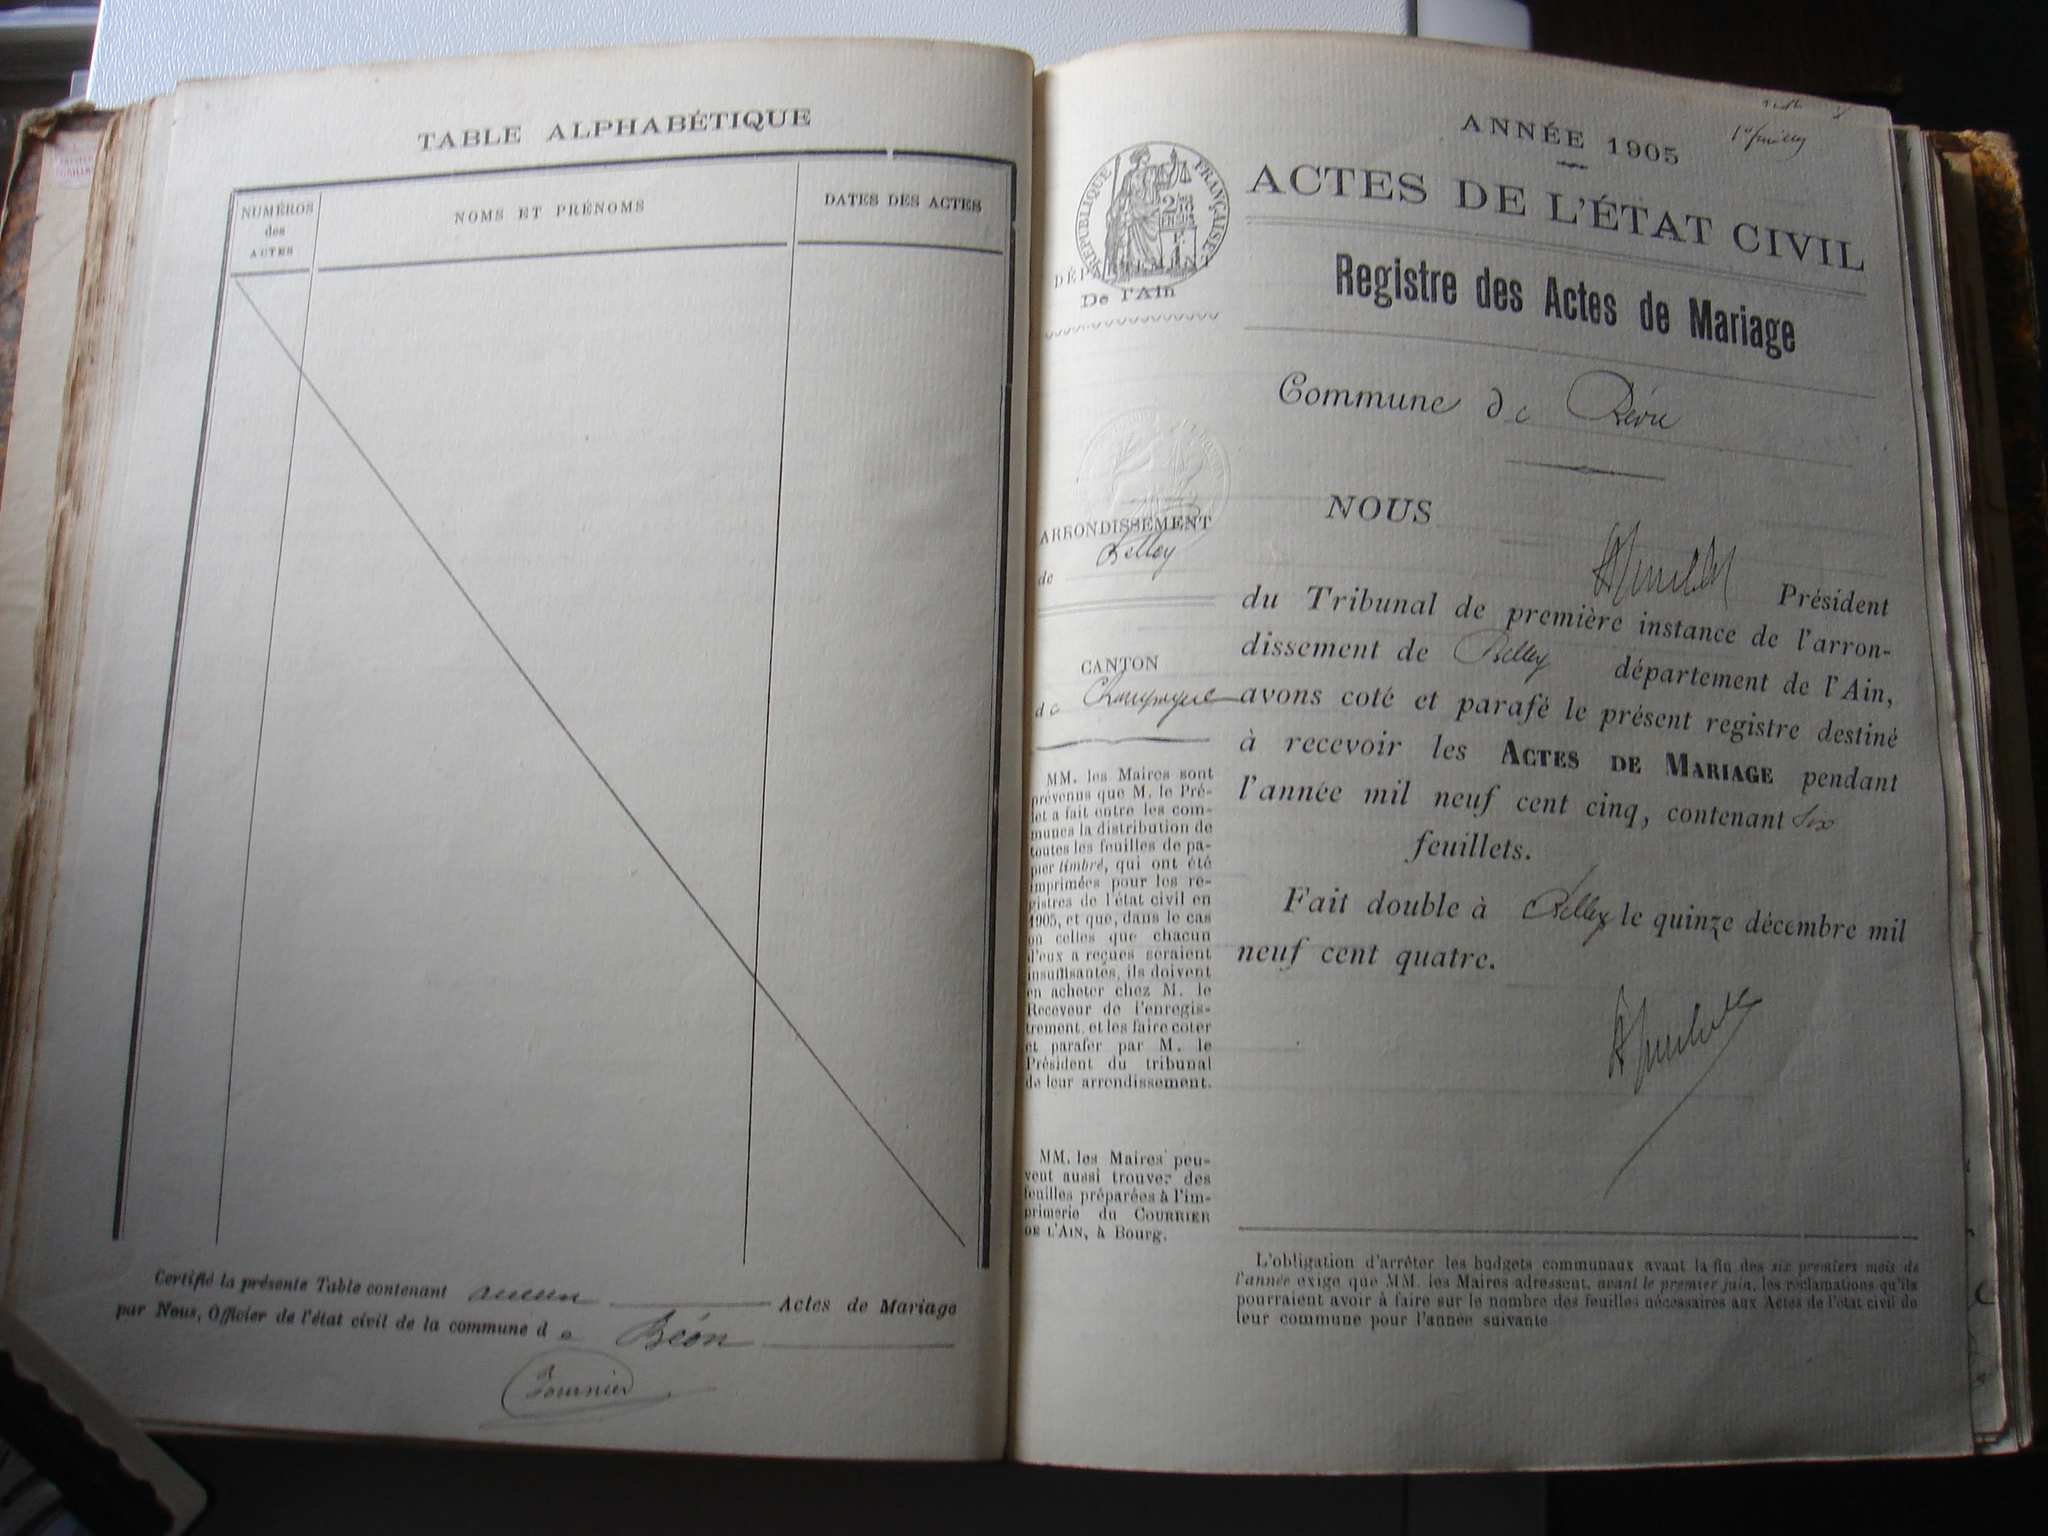 TABLE ALPHABÉTIQUE
NUMÉROS
des
ACTES
NOMS ET PRÉNOMS
DATES DES ACTES
Certifié la présente Table contenant aucun Actes de Mariage
par Nous, Officier de l'état civil de la commune de Béon
Fournier
RÉPUBLIQUE FRANÇAISE
De l'Ain
ARRONDISSEMENT
de Belley
CANTON
de Champagne
MM. les Maires sont
prévenus que M. le Pré-
fet a fait entre les com-
munes la distribution de
toutes les feuilles de pa-
pier timbré, qui ont été
imprimées pour les re-
gistres de l'état civil en
1905, et que, dans le cas
où celles que chacun
d'eux a reçues seraient
insuffisantes, ils doivent
en acheter chez M. le
Receveur de l'enregis-
trement, et les faire coter
et parafer par M. le
Président du tribunal
de leur arrondissement.
MM. les Maires peu-
vent aussi trouver des
feuilles préparées à l'im-
primerie du COURRIER
DE L'AIN, à Bourg.
ANNÉE 1905
ACTES DE L'ÉTAT CIVIL
Registre des Actes de Mariage
Commune de Béon
NOUS
Président
du Tribunal de première instance de l'arron-
dissement de Belley département de l'Ain,
avons coté et parafé le présent registre destiné
à recevoir les ACTES DE MARIAGE pendant
l'année mil neuf cent cinq, contenant six
feuillets.
Fait double à Belley le quinze décembre mil
neuf cent quatre.
L'obligation d'arrêter les budgets communaux avant la fin des six premiers mois de
l'année exige que MM. les Maires adressent, avant le premier juin, les réclamations qu'ils
pourraient avoir à faire sur le nombre des feuilles nécessaires aux Actes de l'état civil de
leur commune pour l'année suivante